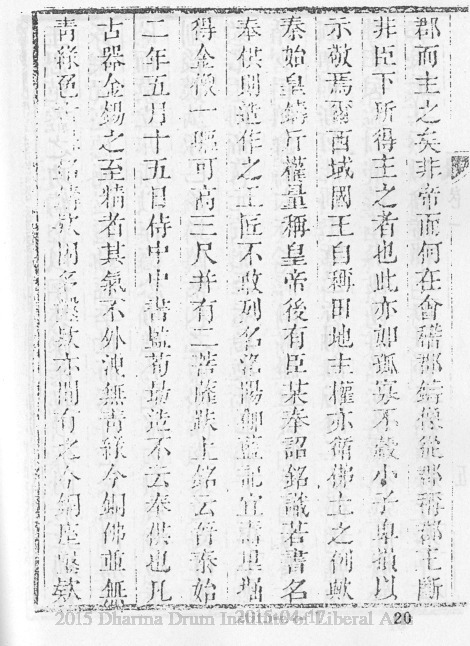 郡而主之矣非帝而何在會稽郡鑄像從郡稱郡王斷
非臣下所得主之者也此亦如孤寡不穀小子卑損以
示敬焉爾西域國王自稱田地主權亦循佛土之例歟
秦始皇鑄斤權量稱皇帝後有臣某奉詔銘識若書名
奉供則造作之工匠不敢列名洛陽伽藍記宜壽里堀
得金像一軀可高三尺并有二菩薩趺上銘云晉泰始
二年五月十五日侍中中書監荀勗造不云奉供也凡
古器金錫之至精者其氣不外洩無青綠今銅佛並無
青綠色 款 亦間有之今銅座墨款
2015 Dharma Drum Institute of Liberal Arts
2015-04-17
20